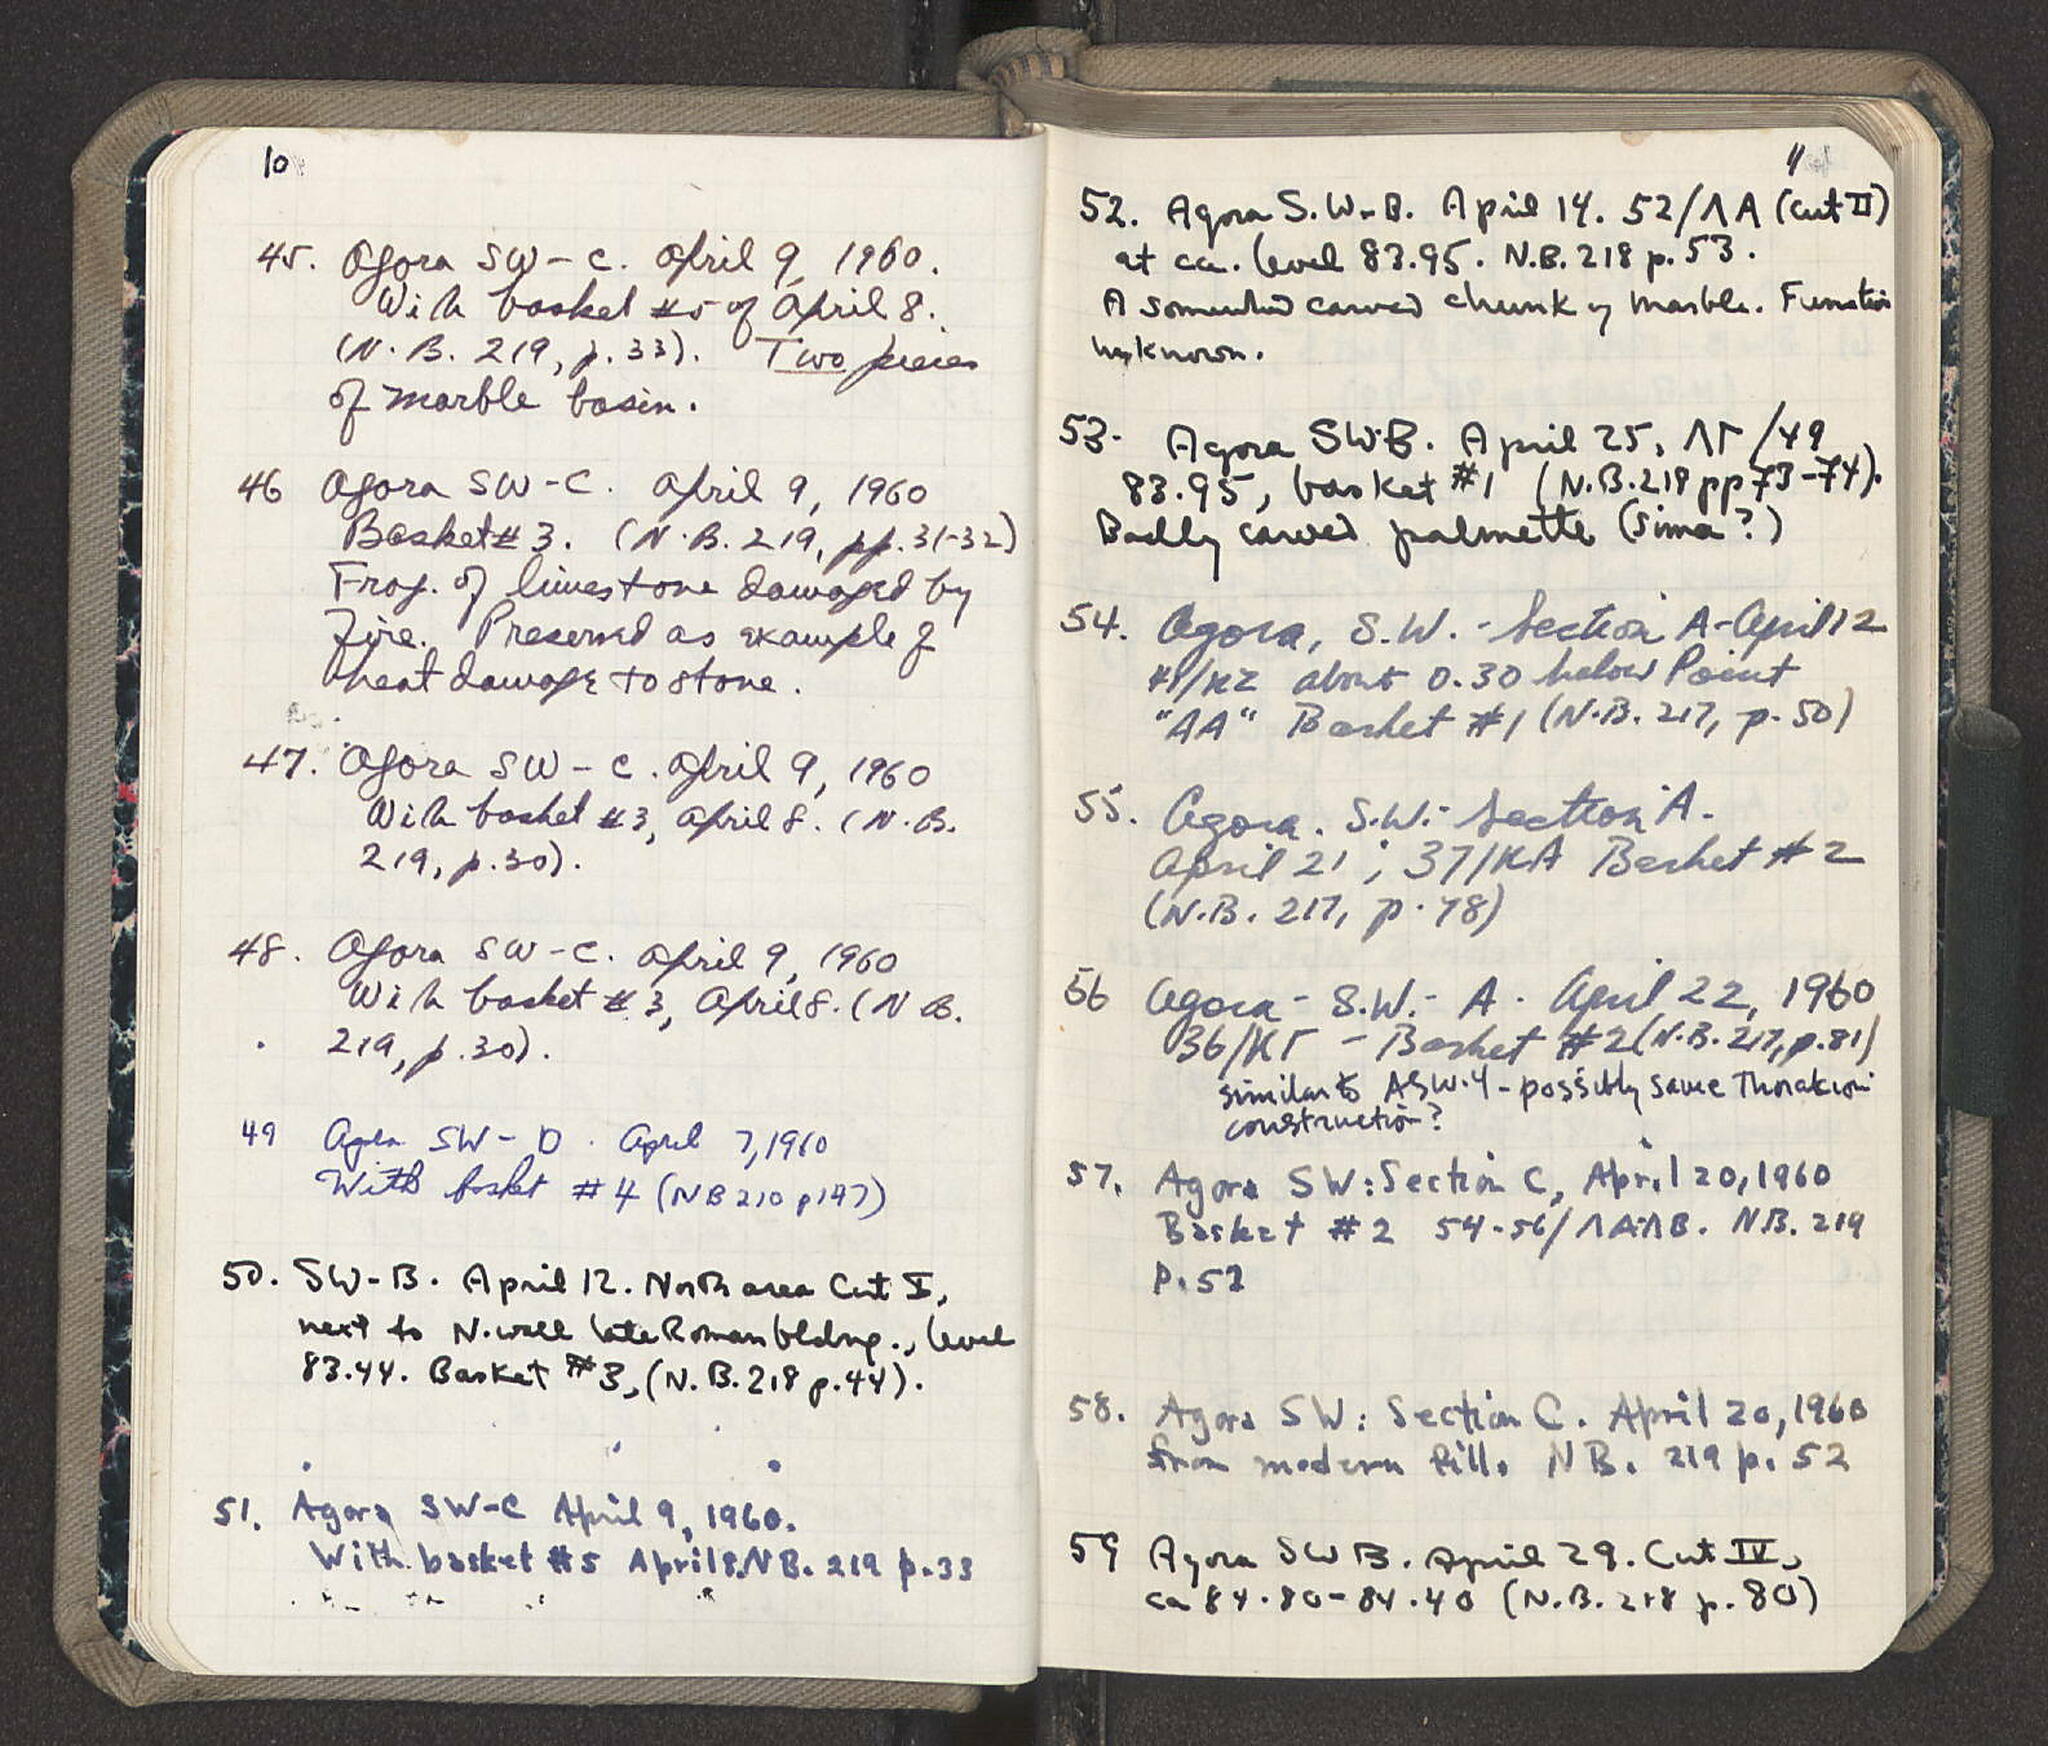 10
45. Agora SW-C. April 9, 1960.
With basket #5 of April 8.
(N.B. 219, p.33). Two pieces
of marble basin.
46 Agora SW-C. April 9, 1960
Basket #3. (N.B. 219, pp.31-32)
Frag. of limestone damaged by
fire. Preserved as example of
heat damage to stone.
47. Agora SW-C. April 9, 1960
With basket #3, April 8. (N.B.
219, p.30).
48. Agora SW-C. April 9, 1960
With basket #3, April 8. (N B.
219, p.30).
49 Agora SW-D. April 7, 1960
With basket #4 (NB 210 p147)
50. SW-B. April 12. North area Cut I,
next to N. wall late Roman bldng., level
83.44. Basket #3, (N.B. 218 p.44).
51. Agora SW-C April 9, 1960.
With basket #5 April 8. NB. 219 p.33
11
52. Agora S.W-B. April 14. 52/ΛA (Cut II)
at ca. level 83.95. N.B. 218 p.53.
A somewhat carved chunk of marble. Function
unknown.
53. Agora SW-B. April 25, ΛΓ/49
83.95, basket #1 (N.B. 218 pp73-74).
Badly carved palmette (Sima?)
54. Agora, S.W.-Section A-April 12
41/KZ about 0.30 below Point
"AA" Basket #1 (N.B. 217, p.50)
55. Agora. S.W.-Section A.
April 21; 37/KA Basket #2
(N.B. 217, p.78)
56 Agora-S.W.-A. April 22, 1960
36/KΓ - Basket #2 (N.B. 217, p.81)
similar to ASW.4-possibly same Thorakion
construction?
57. Agora SW: Section C, April 20, 1960
Basket #2 54-56/ΛA-ΛB. NB. 219
p.52
58. Agora SW: Section C. April 20, 1960
from modern fill. NB. 219 p. 52
59 Agora SW B. April 29. Cut IV,
ca 84.80-84.40 (N.B. 218 p. 80)